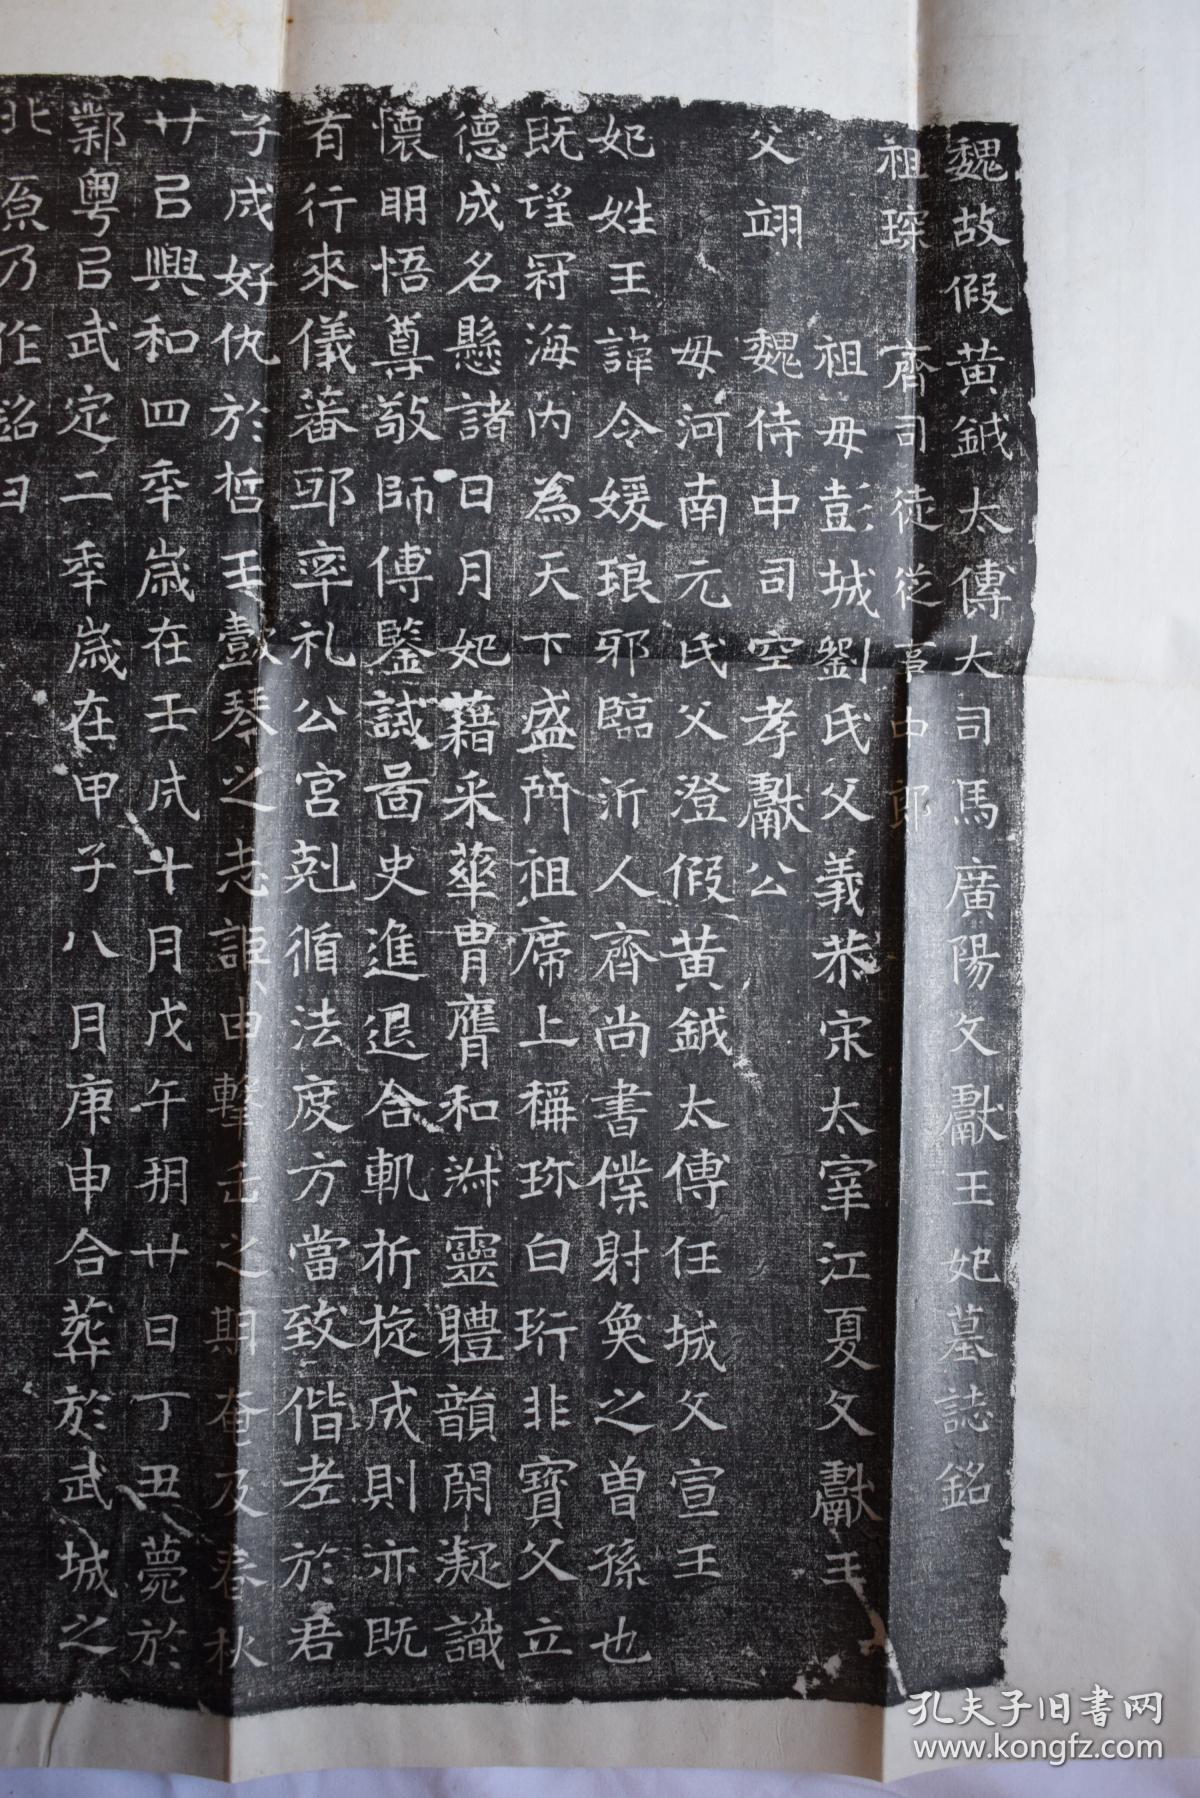 魏故假黃鉞太傅大司馬廣陽文獻王妃墓誌銘
祖琛 齊司徒從事中郎
祖毋彭城劉氏父義恭宋太宰江夏文獻王
父翊 魏侍中司空孝獻公
毋河南元氏父澄假黃鉞太傅任城文宣王
妃姓王諱令媛琅邪臨沂人齊尚書僕射奐之曾孫也
既望冠海內為天下盛門祖席上稱珎白珩非寶父立
德成名懸諸日月妃藉采華胄膺和淋靈體韻閑凝識
懷明悟尊敬師傅鑒試啚史進退合軌折旋成則亦既
有行來儀蕃邸率礼公宮剋循法度方當致偕老於君
子成好仇於哲王豈琴之志詎申擊缶之期奄及春秋
廿㠯興和四秊歲在壬戌十月戊午朔廿日丁丑薨於
鄴粵㠯武定二秊歲在甲子八月庚申合葬於武城之
北原乃作銘曰
孔夫子旧书网
www.kongfz.com